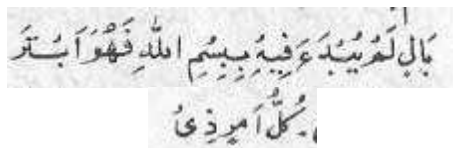 بَالٍ لَمْ يُبْدَءَ فِيهِ بِبِسْمِ اللهِ فَهُوَ اَبْتَر
كُلُّ اَمرٍ ذِى